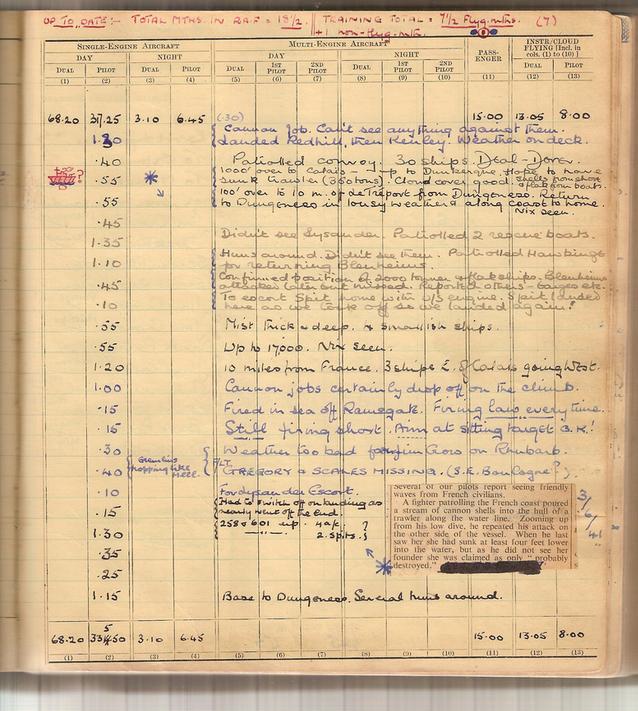 UP TO DATE:- TOTAL MTHS. IN R.A.F = 18 1/2. || TRAINING TOTAL = 7 1/2 Flyg. mths. (7)
+1 non-flyg. mth.
SINGLE-ENGINE AIRCRAFT MULTI-ENGINE AIRCRAFT PASS-ENGER INSTR/CLOUD FLYING [Incl. in cols. (1) to (10)]
DAY NIGHT DAY NIGHT
DUAL PILOT DUAL PILOT DUAL 1ST PILOT 2ND PILOT DUAL 1ST PILOT 2ND PILOT DUAL PILOT
(1) (2) (3) (4) (5) (6) (7) (8) (9) (10) (11) (12) (13)
68.20 3.10 6.45 (.30) 15.00 13.05 8.00
Cannon Job. Can't see anything against them.
1.30 Landed Redhill, then Kenley. Weather on deck.
.40 Patrolled convoy. 30 ships. Deal - Dover.
1000' over to Calais - up to Dunkerque. Hope to have
.55 sunk trawler (350 tons). Cloud cover good. shells from shore & flak from boats.
100' over to 10 m. of de'treport from Dungeness. Return
.55 to Dungeness in lousy weather & along coast to home. Nix seen.
.45
1.35 Didn't see Lysander. Patrolled 2 rescue boats.
Huns around. Didn't see them. Patrolled Hawkinge
1.10 for returning Blenheims.
Confirmed position of 2000 tonner & flakships. Blenheims
.45 attacked later but missed. Reported others - barges etc.
To escort Spit home with U/S engine. Spit landed
.10 here as we took off so we landed again!
.55 Mist thick & deep. 4 smallish ships.
.55 Up to 17000. Nix seen.
1.20 10 miles from France. 3 ships E. of Calais going West.
1.00 Cannon jobs certainly drop off on the climb.
.15 Fired in sea off Ramsgate. Firing low every time.
.15 Still firing short. Aim at sitting target O.K.!
.30 Weather too bad for on Rhubarb.
Gremlins hopping like
.40 F/LT. GREGORY & SCALES MISSING. (S.E. Boulogne?)
.10 For Lysander Escort.
Had to switch off on landing as
.15 nearly went off the end.
258 & 601 up. 4 a/c ?
1.30 2 Spits. ?
.35
.25
1.15 Base to Dungeness. Several huns around.
several of our pilots report seeing friendly
waves from French civilians.
A fighter patrolling the French coast poured
a stream of cannon shells into the hull of a
trawler along the water line. Zooming up
from his low dive, he repeated his attack on
the other side of the vessel. When he last
saw her she had sunk at least four feet lower
into the water, but as he did not see her
founder she was claimed as only "probably
destroyed."
3/6/41
68.20 3.10 6.45 15.00 13.05 8.00
(1) (2) (3) (4) (5) (6) (7) (8) (9) (10) (11) (12) (13)